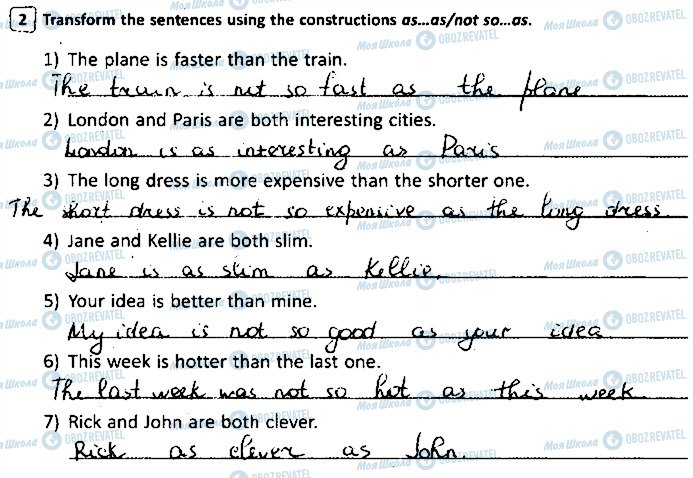 2 Transform the sentences using the constructions as...as/not so...as.
1) The plane is faster than the train.
The train is not so fast as the plane
2) London and Paris are both interesting cities.
London is as interesting as Paris
3) The long dress is more expensive than the shorter one.
The short dress is not so expensive as the long dress
4) Jane and Kellie are both slim.
Jane is as slim as Kellie.
5) Your idea is better than mine.
My idea is not so good as your idea
6) This week is hotter than the last one.
The last week was not so hot as this week
7) Rick and John are both clever.
Rick as clever as John.
Моя Школа OBOZREVATEL